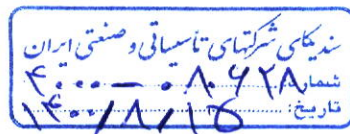 سندیکای شرکتهای تأسیساتی و صنعتی ایران
شماره: ۴۰۰۰-۰۸۰۶۲۸
تاریخ: ۱۴۰۰/۸/۱۵